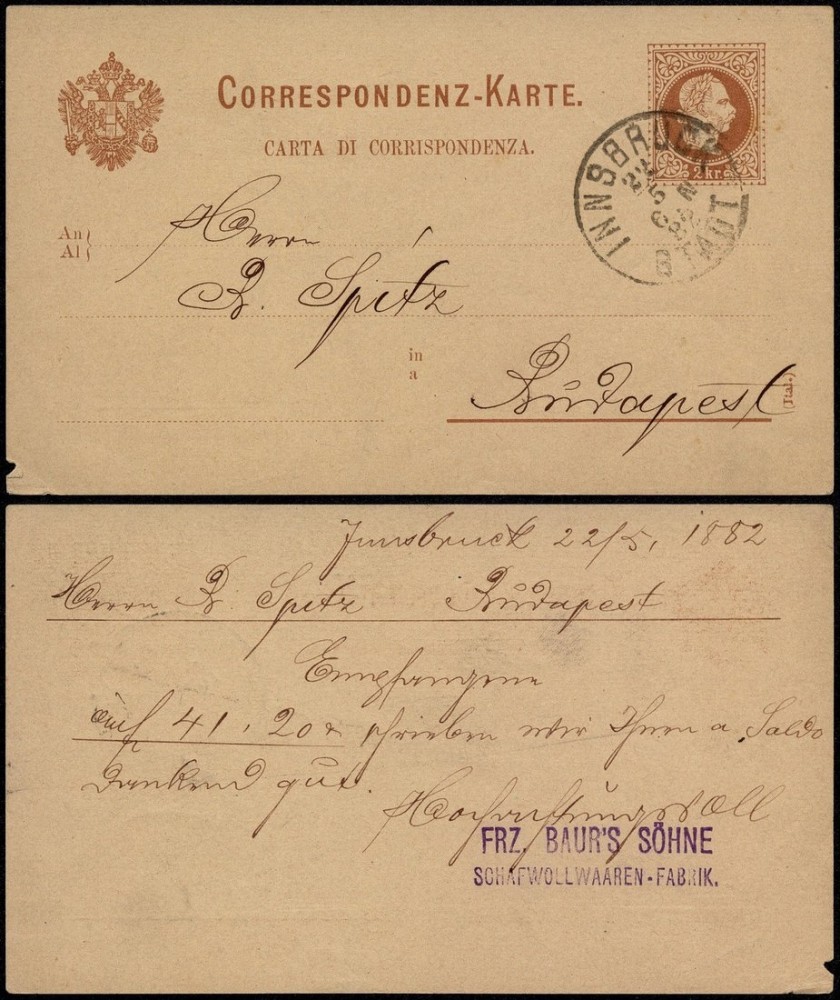 CORRESPONDENZ-KARTE.
CARTA DI CORRISPONDENZA.
2 kr.
INNSBRUCK STADT
22 5
82
An
Al
Herrn
B. Spitz
in
a
Budapest
(Ital.)
Innsbruck 22/5, 1882
Herrn B Spitz Budapest
Empfangene
auf 41, 20 schrieben wir Ihnen a Saldo
dankend gut.
Hochachtungsvoll
FRZ. BAUR'S SÖHNE
SCHAFWOLLWAAREN-FABRIK.